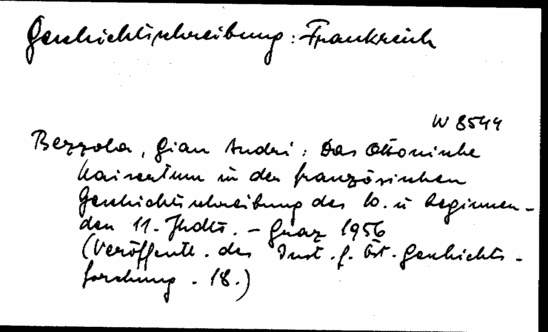 Geschichtschreibung: Frankreich
W 8544
Bezzola, Gian Andri: Das Ottonische
Kaisertum in der französischen
Geschichtschreibung des 10. u. beginnen-
den 11. Jhdts. - Graz 1956
(Veröffentl. des Inst. f. öst. Geschichts-
forschung. 18.)